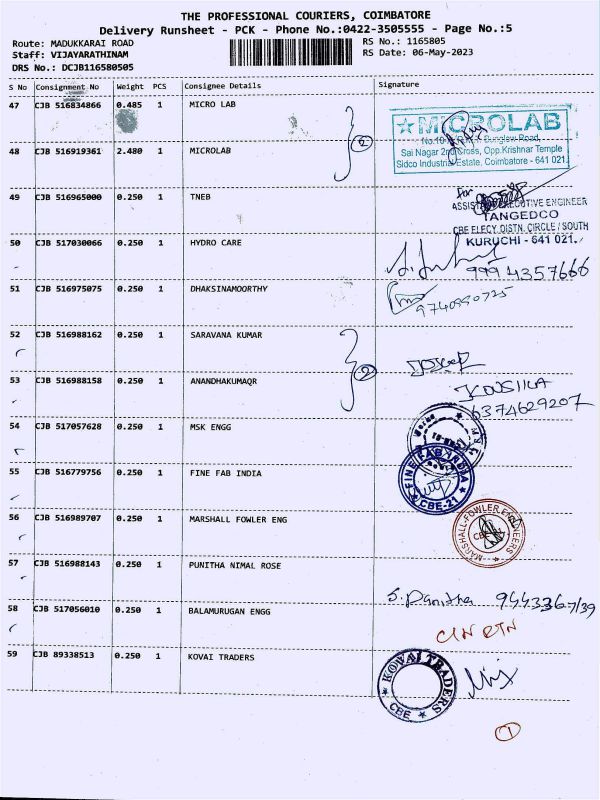 THE PROFESSIONAL COURIERS, COIMBATORE
Delivery Runsheet - PCK - Phone No.:0422-3505555 - Page No.:5
Route: MADUKKARAI ROAD
RS No.: 1165805
Staff: VIJAYARATHINAM
RS Date: 06-May-2023
DRS No.: DCJB116580505
S No Consignment No Weight PCS Consignee Details Signature
47 CJB 516834866 0.485 1 MICRO LAB
2
MICROLAB
Bunglew Road,
Sai Nagar 2nd Cross, Opp.Krishnar Temple
Sidco Industrial Estate, Coimbatore - 641 021.
48 CJB 516919361 2.480 1 MICROLAB
49 CJB 516965000 0.250 1 TNEB
for
ASSISTANT EXECUTIVE ENGINEER
TANGEDCO
CBE ELECY DISTN. CIRCLE / SOUTH
KURUCHI - 641 021.
50 CJB 517030066 0.250 1 HYDRO CARE
9994357666
51 CJB 516975075 0.250 1 DHAKSINAMOORTHY
9740990725
52 CJB 516988162 0.250 1 SARAVANA KUMAR
2
53 CJB 516988158 0.250 1 ANANDHAKUMAQR
KOUSIKA
6374629207
54 CJB 517057628 0.250 1 MSK ENGG
55 CJB 516779756 0.250 1 FINE FAB INDIA
FINE FAB INDIA
CBE-21
56 CJB 516989707 0.250 1 MARSHALL FOWLER ENG
MARSHALL-FOWLER ENGINEERS
57 CJB 516988143 0.250 1 PUNITHA NIMAL ROSE
S. Punitha 9443367139
58 CJB 517056010 0.250 1 BALAMURUGAN ENGG
CIN RTN
59 CJB 89338513 0.250 1 KOVAI TRADERS
KOVAI TRADERS
CBE
1